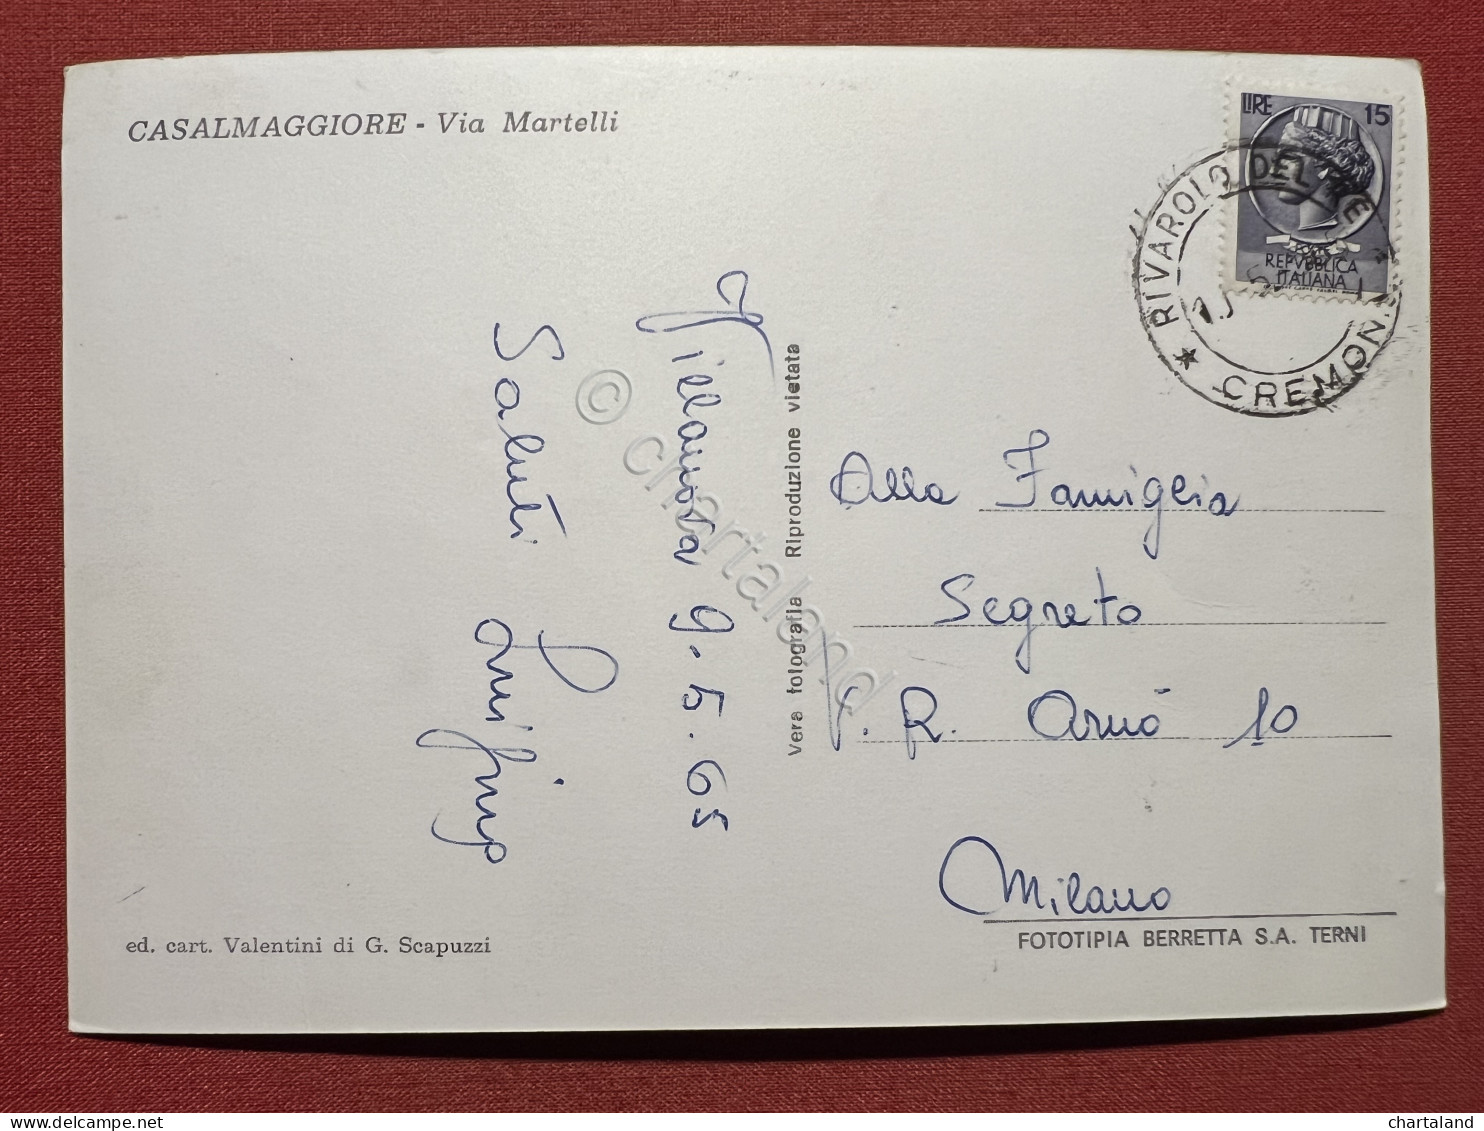 CASALMAGGIORE - Via Martelli
LIRE 15
REPVBBLICA
ITALIANA
RIVAROLO DEL RE
CREMONA
Villanova 9.5.65
Saluti
vera fotografia Riproduzione vietata
Alla Famiglia
Segreto
R. Arnò 10
Milano
FOTOTIPIA BERRETTA S.A. TERNI
ed. cart. Valentini di G. Scapuzzi
© chartaland
delcampe.net
chartaland